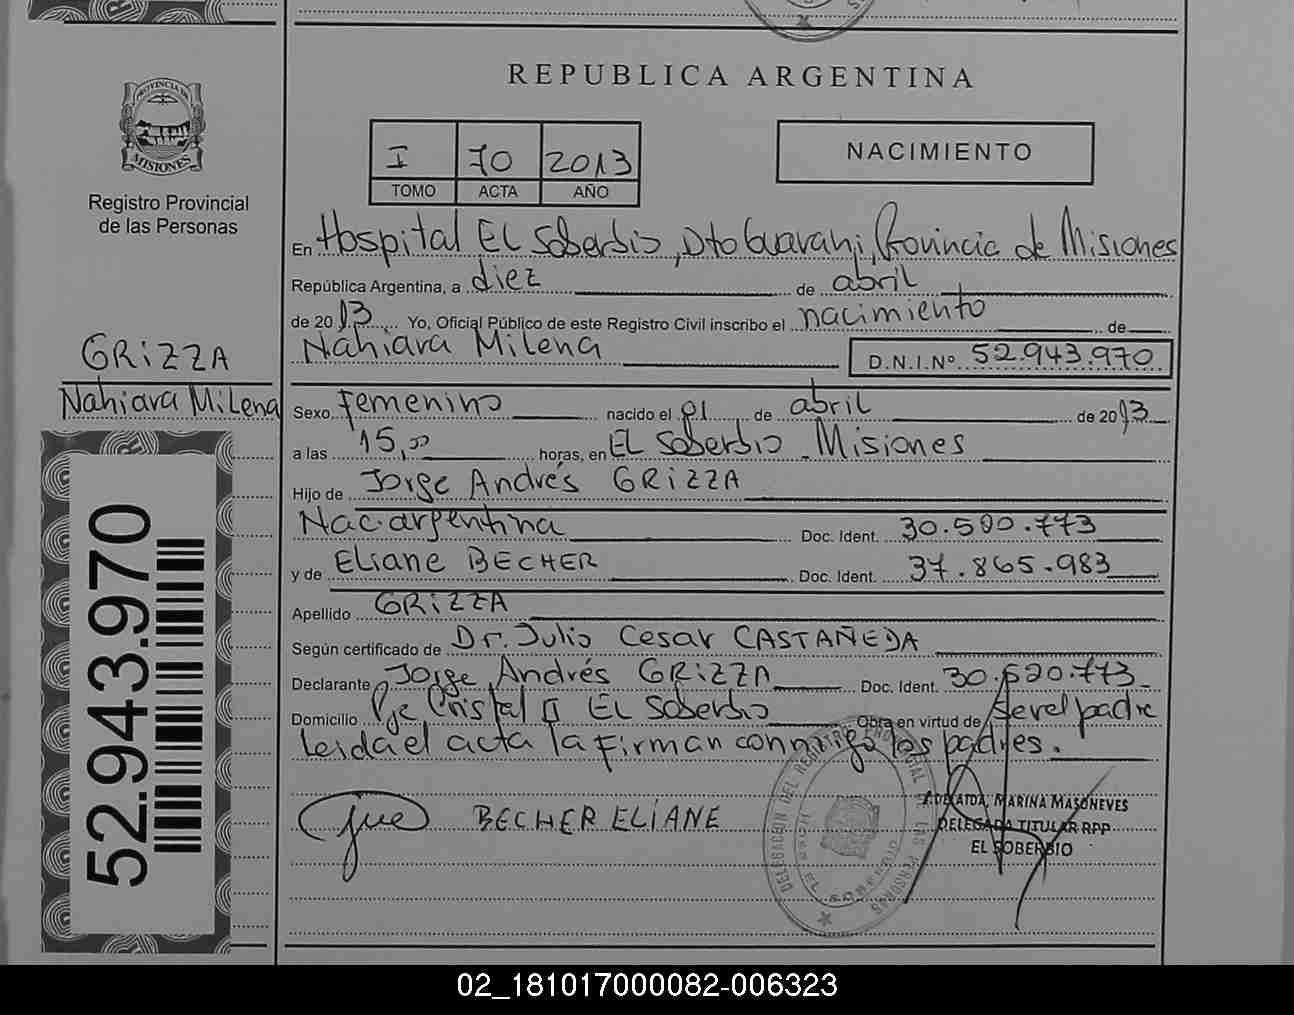 REPUBLICA ARGENTINA
PROVINCIA DE
MISIONES
Registro Provincial
de las Personas
I 70 2013
TOMO ACTA AÑO
NACIMIENTO
En Hospital EL Soberbio, Dto Guarani, Provincia de Misiones
República Argentina, a diez de abril
de 2013 Yo, Oficial Público de este Registro Civil inscribo el nacimiento de
Nahiara Milena D.N.I.Nº 52.943.970
GRIZZA
Nahiara Milena
Sexo Femenino nacido el 01 de abril de 2013
a las 15,00 horas, en EL Soberbio - Misiones
Hijo de Jorge Andrés GRIZZA
Nac. argentina Doc. Ident. 30.590.773
y de Eliane BECHER Doc. Ident. 37.865.983
Apellido GRIZZA
Según certificado de Dr. Julio Cesar CASTAÑEDA
Declarante Jorge Andrés GRIZZA Doc. Ident. 30.520.773
Domicilio Pje Cristal II EL Soberbio Obra en virtud de ser el padre
Leida el acta la firman conmigo los padres.
BECHER ELIANE
ADELAIDA, MARINA MASONEVES
DELEGADA TITULAR RPP
EL SOBERBIO
DELEGACION DEL REGISTRO PROVINCIAL DE LAS PERSONAS
EL SOBERBIO
52.943.970
02_181017000082-006323